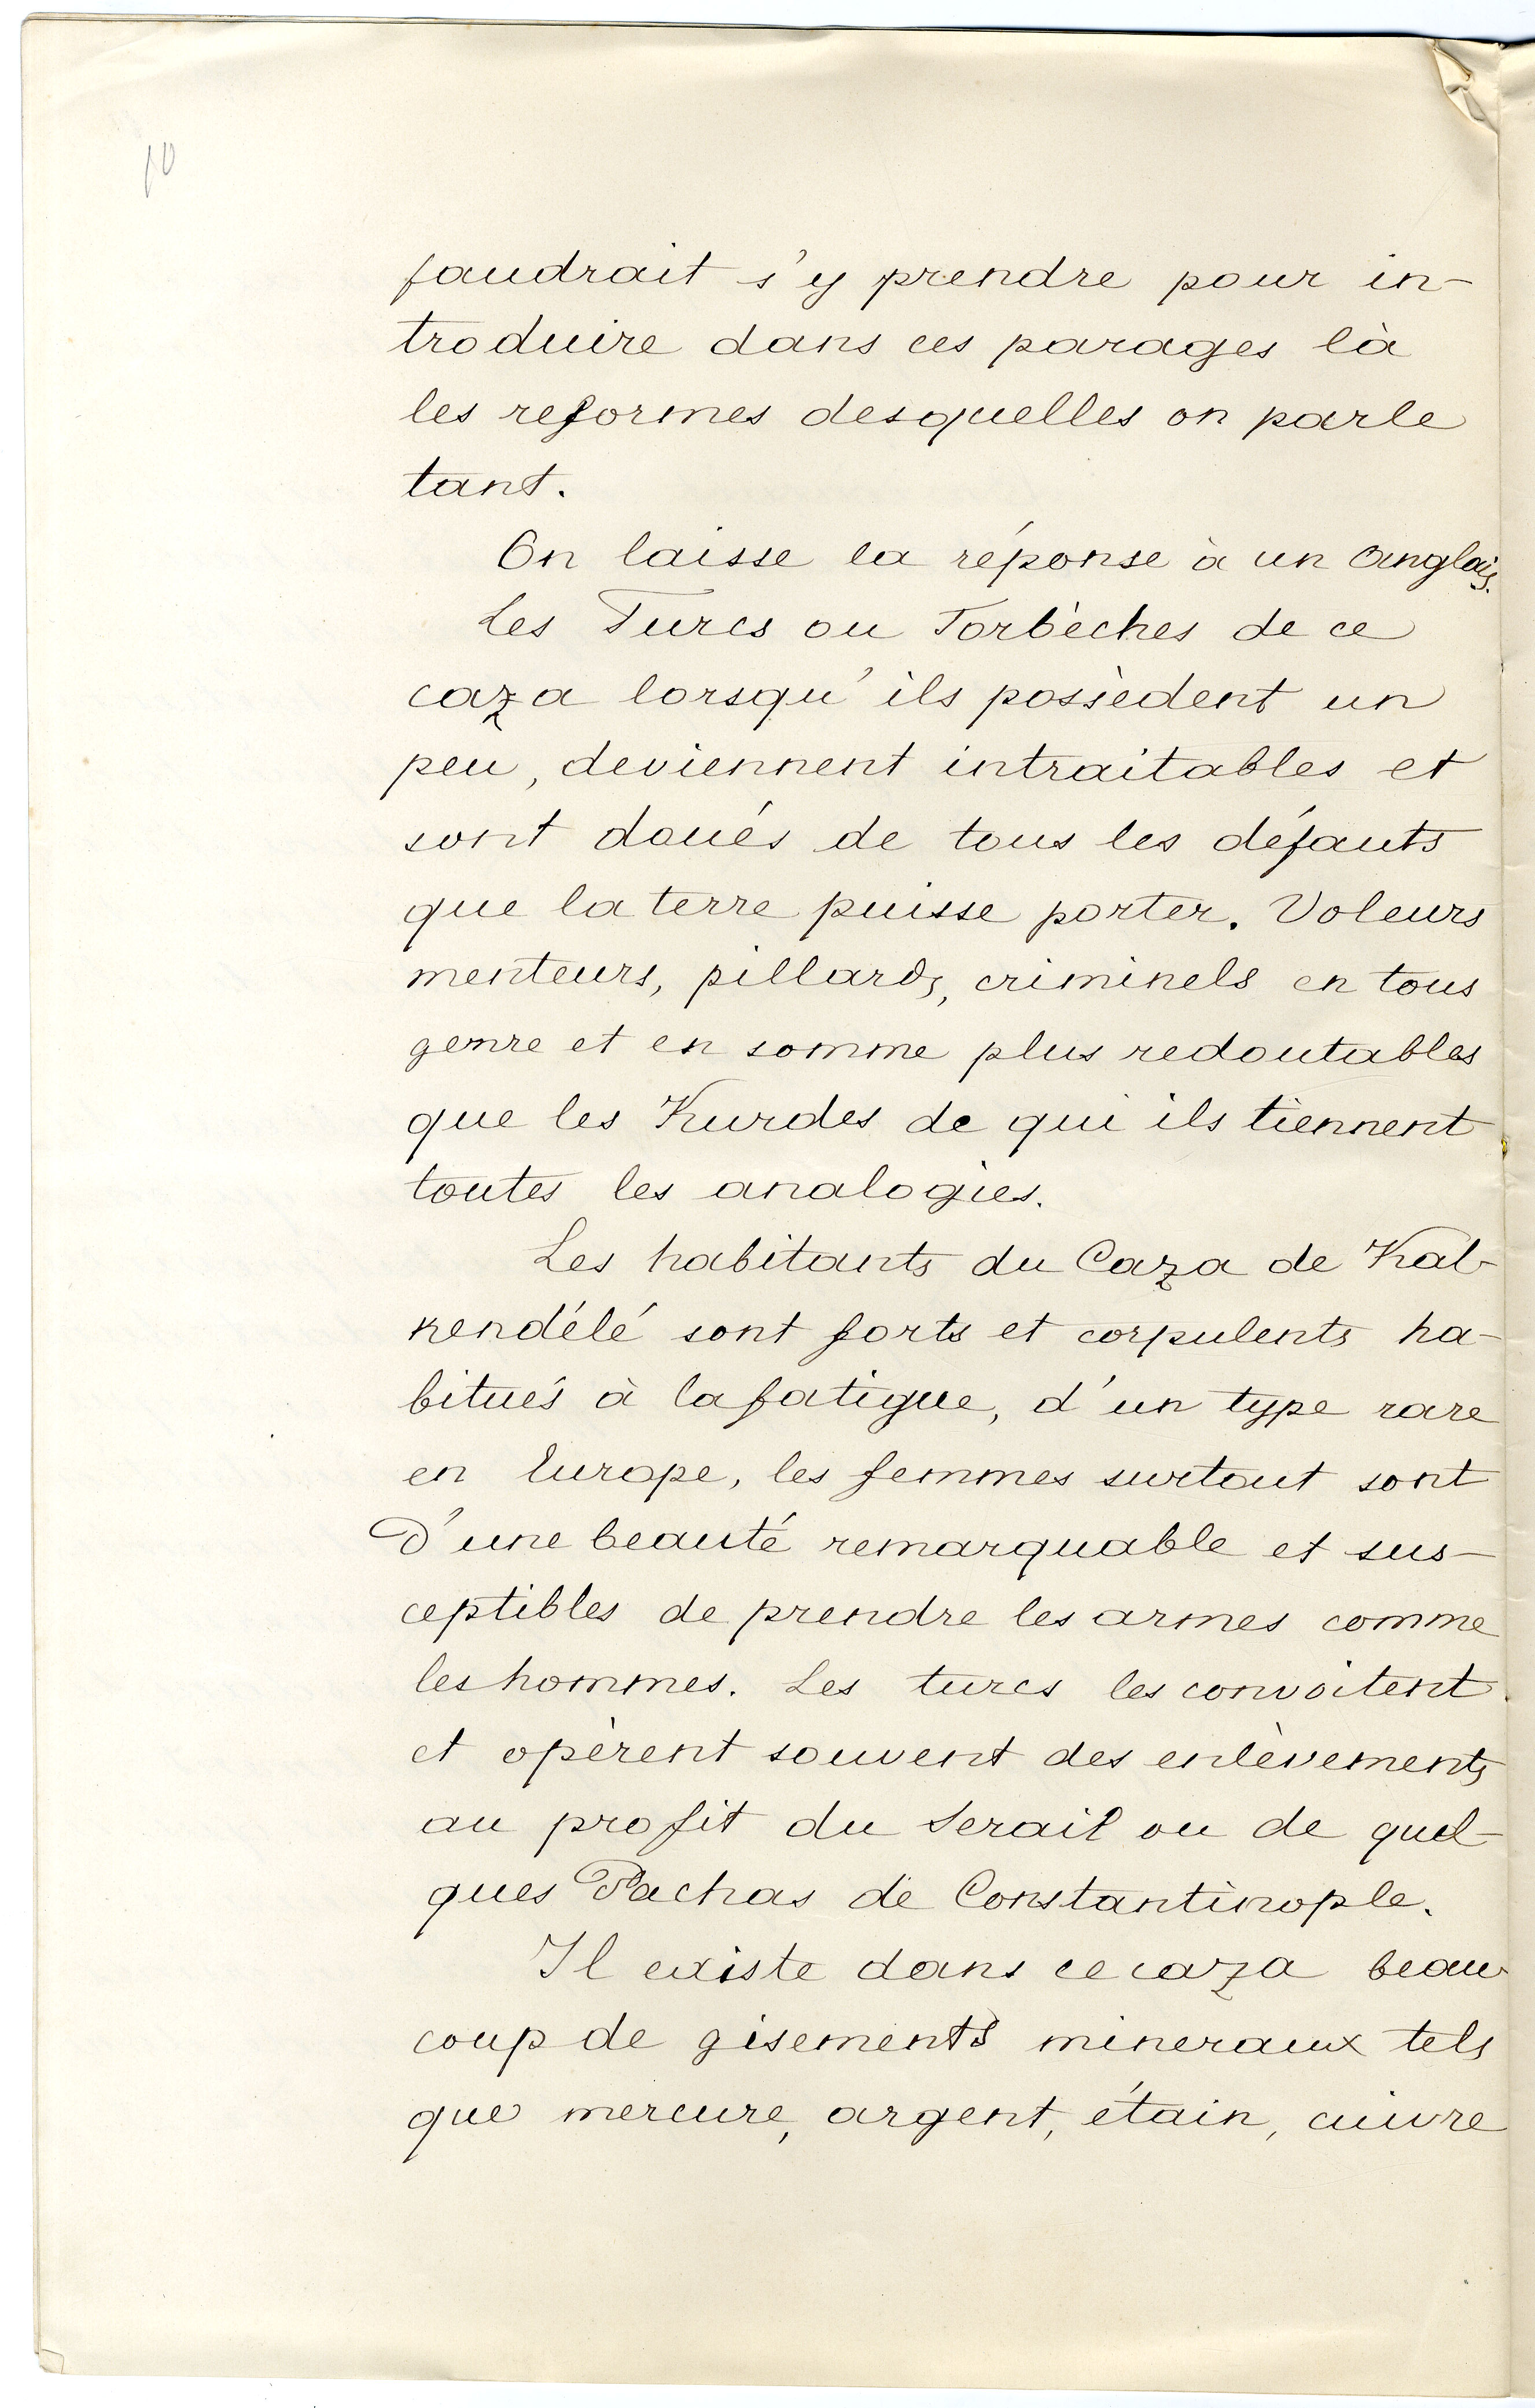 10
faudrait s'y prendre pour in-
troduire dans ces parages là
les reformes desquelles on parle
tant.
On laisse la réponse à un Anglais.
Les Turcs ou Torbèches de ce
caza lorsqu'ils possèdent un
peu, deviennent intraitables et
sont doués de tous les défauts
que la terre puisse porter. Voleurs
menteurs, pillards, criminels en tous
genre et en somme plus redoutables
que les Kurdes de qui ils tiennent
toutes les analogies.
Les habitants du Caza de Kal-
kendélé sont forts et corpulents ha-
bitués à la fatigue, d'un type rare
en Europe, les femmes surtout sont
d'une beauté remarquable et sus-
ceptibles de prendre les armes comme
les hommes. Les turcs les convoitent
et opèrent souvent des enlèvements
au profit du Serail ou de quel-
ques Pachas de Constantinople.
Il existe dans ce caza beau-
coup de gisements mineraux tels
que mercure, argent, étain, cuivre